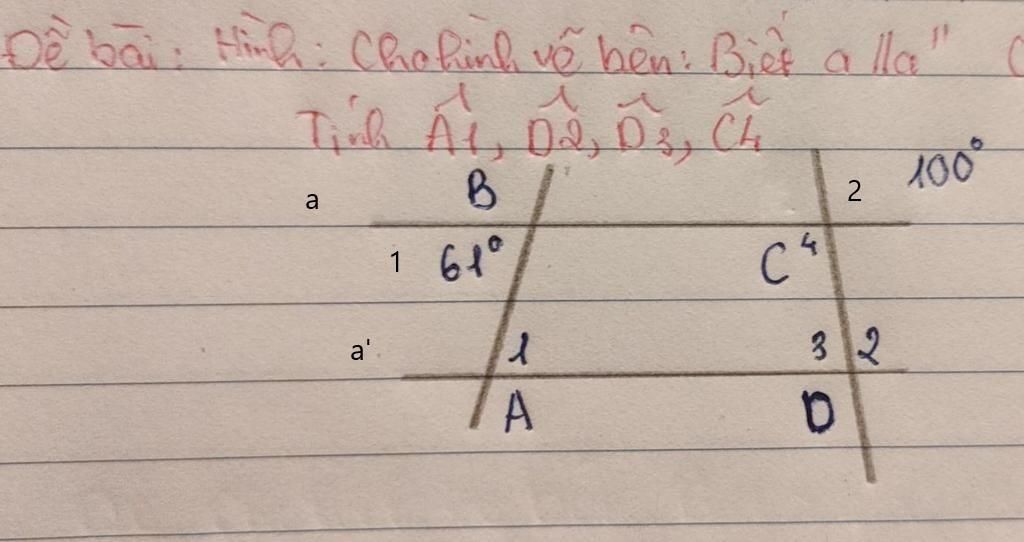 Đề bài: Hình: Cho hình vẽ bên: Biết a // a" C
Tính Â1, D̂2, D̂3, Ĉ4
a B 2 100°
1 61° C 4
a' 1 3 2
A D